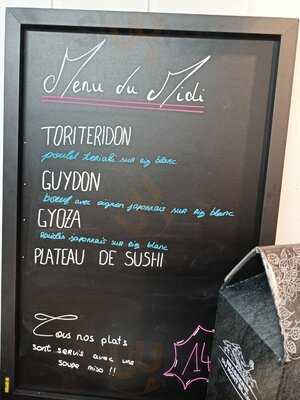 Menu du Midi
TORITERIDON
poulet teriaki sur riz blanc
GUYDON
boeuf avec oignon japonais sur riz blanc
GYOZA
Ravioles japonnais sur riz blanc
PLATEAU DE SUSHI
Tous nos plats
sont servis avec une
soupe miso !!
14